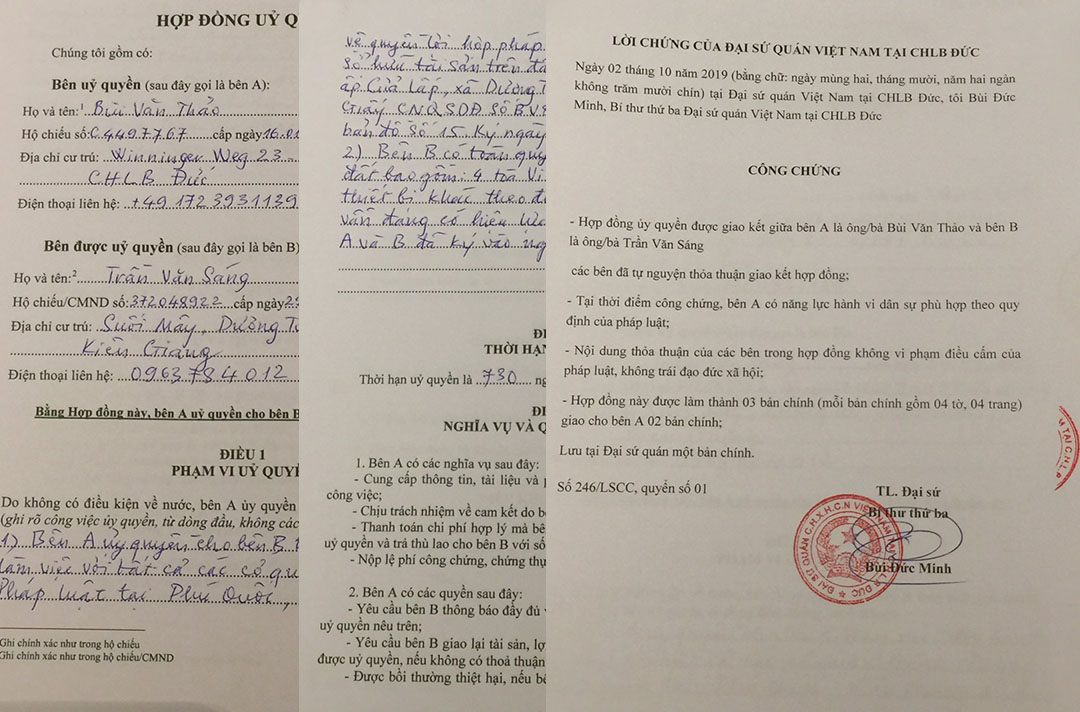 HỢP ĐỒNG UỶ Q
Chúng tôi gồm có:
Bên uỷ quyền (sau đây gọi là bên A):
Họ và tên:1 Bùi Văn Thảo
Hộ chiếu số: C4497767 cấp ngày 16.01
Địa chỉ cư trú: Winninger Weg 23
CHLB Đức
Điện thoại liên hệ: +49 172 3931139
Bên được uỷ quyền (sau đây gọi là bên B)
Họ và tên:2 Trần Văn Sáng
Hộ chiếu/CMND số: 372048922 cấp ngày 2
Địa chỉ cư trú: Suối Mây, Dương T
Kiên Giang
Điện thoại liên hệ: 0963784012
Bằng Hợp đồng này, bên A uỷ quyền cho bên B
ĐIỀU 1
PHẠM VI UỶ QUYỀ
Do không có điều kiện về nước, bên A ủy quyền
(ghi rõ công việc ủy quyền, từ dòng đầu, không các
1) Bên A uỷ quyền cho bên B
làm việc với tất cả các cơ qu
Pháp luật tại Phú Quốc,
Ghi chính xác như trong hộ chiếu
Ghi chính xác như trong hộ chiếu/CMND
về quyền lợi hợp pháp
sở hữu tài sản trên đấ
ấp Cửa Lấp, xã Dương T
Giấy CNQSDĐ Số BV9
bản đồ số 15 Ký ngày
2) Bên B có toàn quy
đất bao gồm: 4 toà Vi
thiết bị khác theo đ
vẫn đang có hiệu lự
A và B đã ký vào ng
ĐI
THỜI HẠ
Thời hạn uỷ quyền là 730 ng
ĐI
NGHĨA VỤ VÀ Q
1. Bên A có các nghĩa vụ sau đây:
- Cung cấp thông tin, tài liệu và p
công việc;
- Chịu trách nhiệm về cam kết do b
- Thanh toán chi phí hợp lý mà bê
uỷ quyền và trả thù lao cho bên B với số
- Nộp lệ phí công chứng, chứng thự
2. Bên A có các quyền sau đây:
- Yêu cầu bên B thông báo đầy đủ v
uỷ quyền nêu trên;
- Yêu cầu bên B giao lại tài sản, lợ
được uỷ quyền, nếu không có thoả thuận
- Được bồi thường thiệt hại, nếu bê
LỜI CHỨNG CỦA ĐẠI SỨ QUÁN VIỆT NAM TẠI CHLB ĐỨC
Ngày 02 tháng 10 năm 2019 (bằng chữ: ngày mùng hai, tháng mười, năm hai ngàn
không trăm mười chín) tại Đại sứ quán Việt Nam tại CHLB Đức, tôi Bùi Đức
Minh, Bí thư thứ ba Đại sứ quán Việt Nam tại CHLB Đức
CÔNG CHỨNG
- Hợp đồng ủy quyền được giao kết giữa bên A là ông/bà Bùi Văn Thảo và bên B
là ông/bà Trần Văn Sáng
các bên đã tự nguyện thỏa thuận giao kết hợp đồng;
- Tại thời điểm công chứng, bên A có năng lực hành vi dân sự phù hợp theo quy
định của pháp luật;
- Nội dung thỏa thuận của các bên trong hợp đồng không vi phạm điều cấm của
pháp luật, không trái đạo đức xã hội;
- Hợp đồng này được làm thành 03 bản chính (mỗi bản chính gồm 04 tờ, 04 trang)
giao cho bên A 02 bản chính;
Lưu tại Đại sứ quán một bản chính.
Số 246/LSCC, quyển số 01
TL. Đại sứ
Bí thư thứ ba
Bùi Đức Minh
ĐẠI SỨ QUÁN C.H.X.H.C.N VIỆT NAM TẠI C.H.L.B ĐỨC
M TẠI C.H.L.B